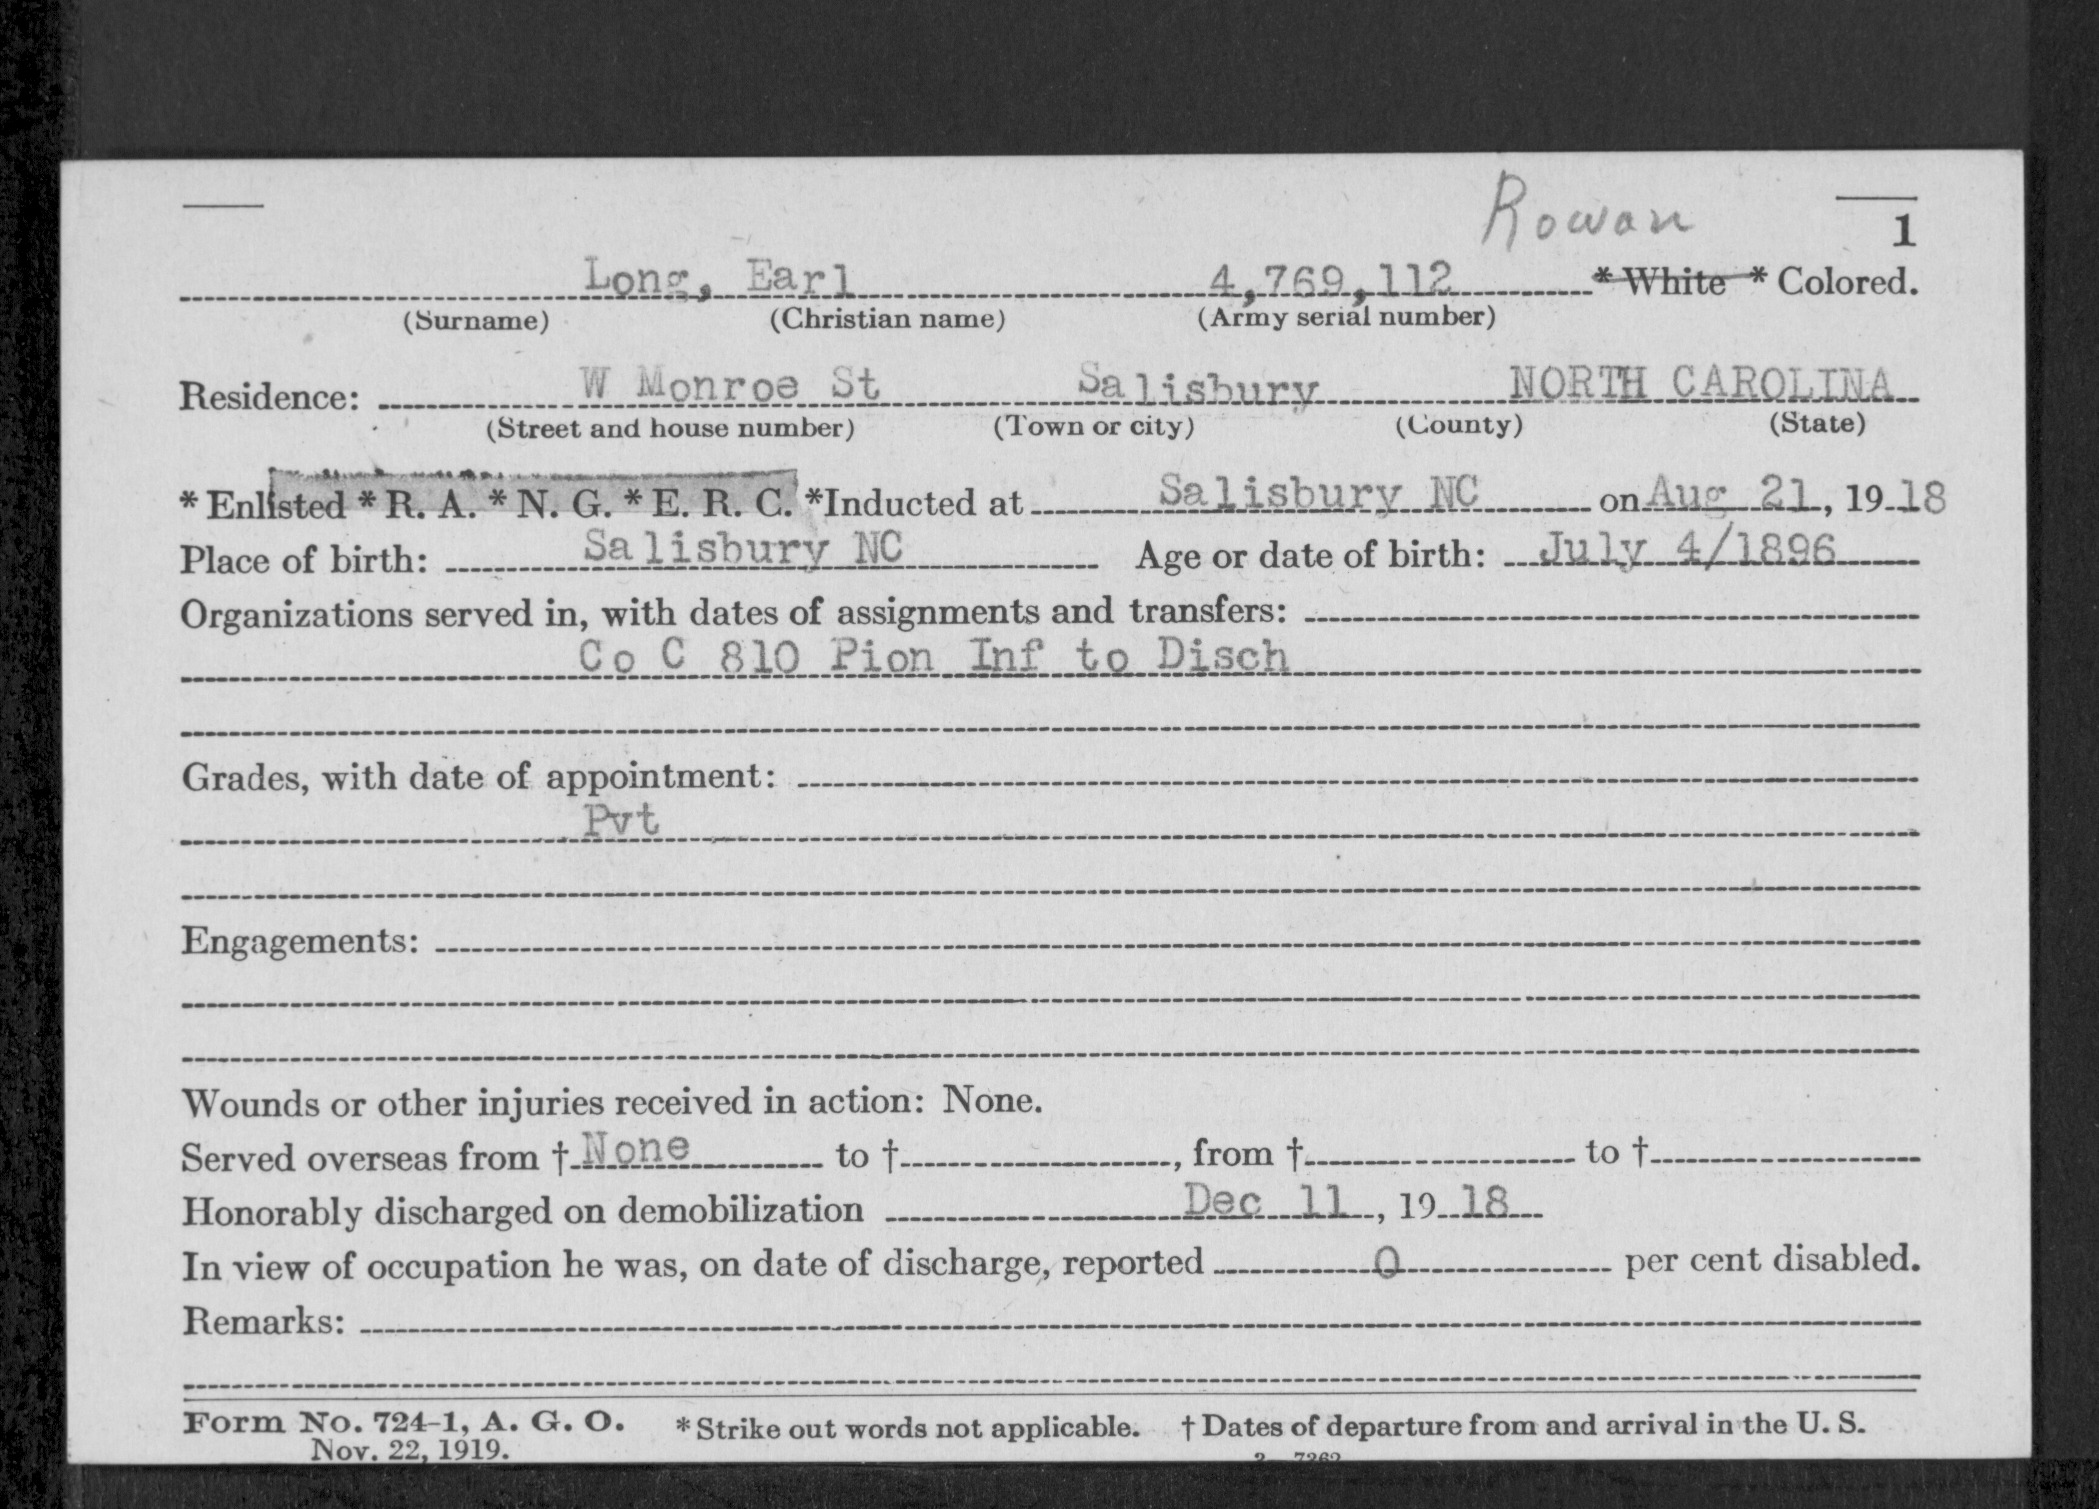 Rowan
1
Long, Earl 4,769,112 * White * Colored.
(Surname) (Christian name) (Army serial number)
Residence: W Monroe St Salisbury NORTH CAROLINA
(Street and house number) (Town or city) (County) (State)
* Enlisted * R. A. * N. G. * E. R. C. *Inducted at Salisbury NC on Aug 21, 19 18
Place of birth: Salisbury NC Age or date of birth: July 4/1896
Organizations served in, with dates of assignments and transfers:
Co C 810 Pion Inf to Disch
Grades, with date of appointment:
Pvt
Engagements:
Wounds or other injuries received in action: None.
Served overseas from † None to †, from † to †
Honorably discharged on demobilization Dec 11, 19 18
In view of occupation he was, on date of discharge, reported 0 per cent disabled.
Remarks:
Form No. 724-1, A. G. O. * Strike out words not applicable. † Dates of departure from and arrival in the U. S.
Nov. 22, 1919.